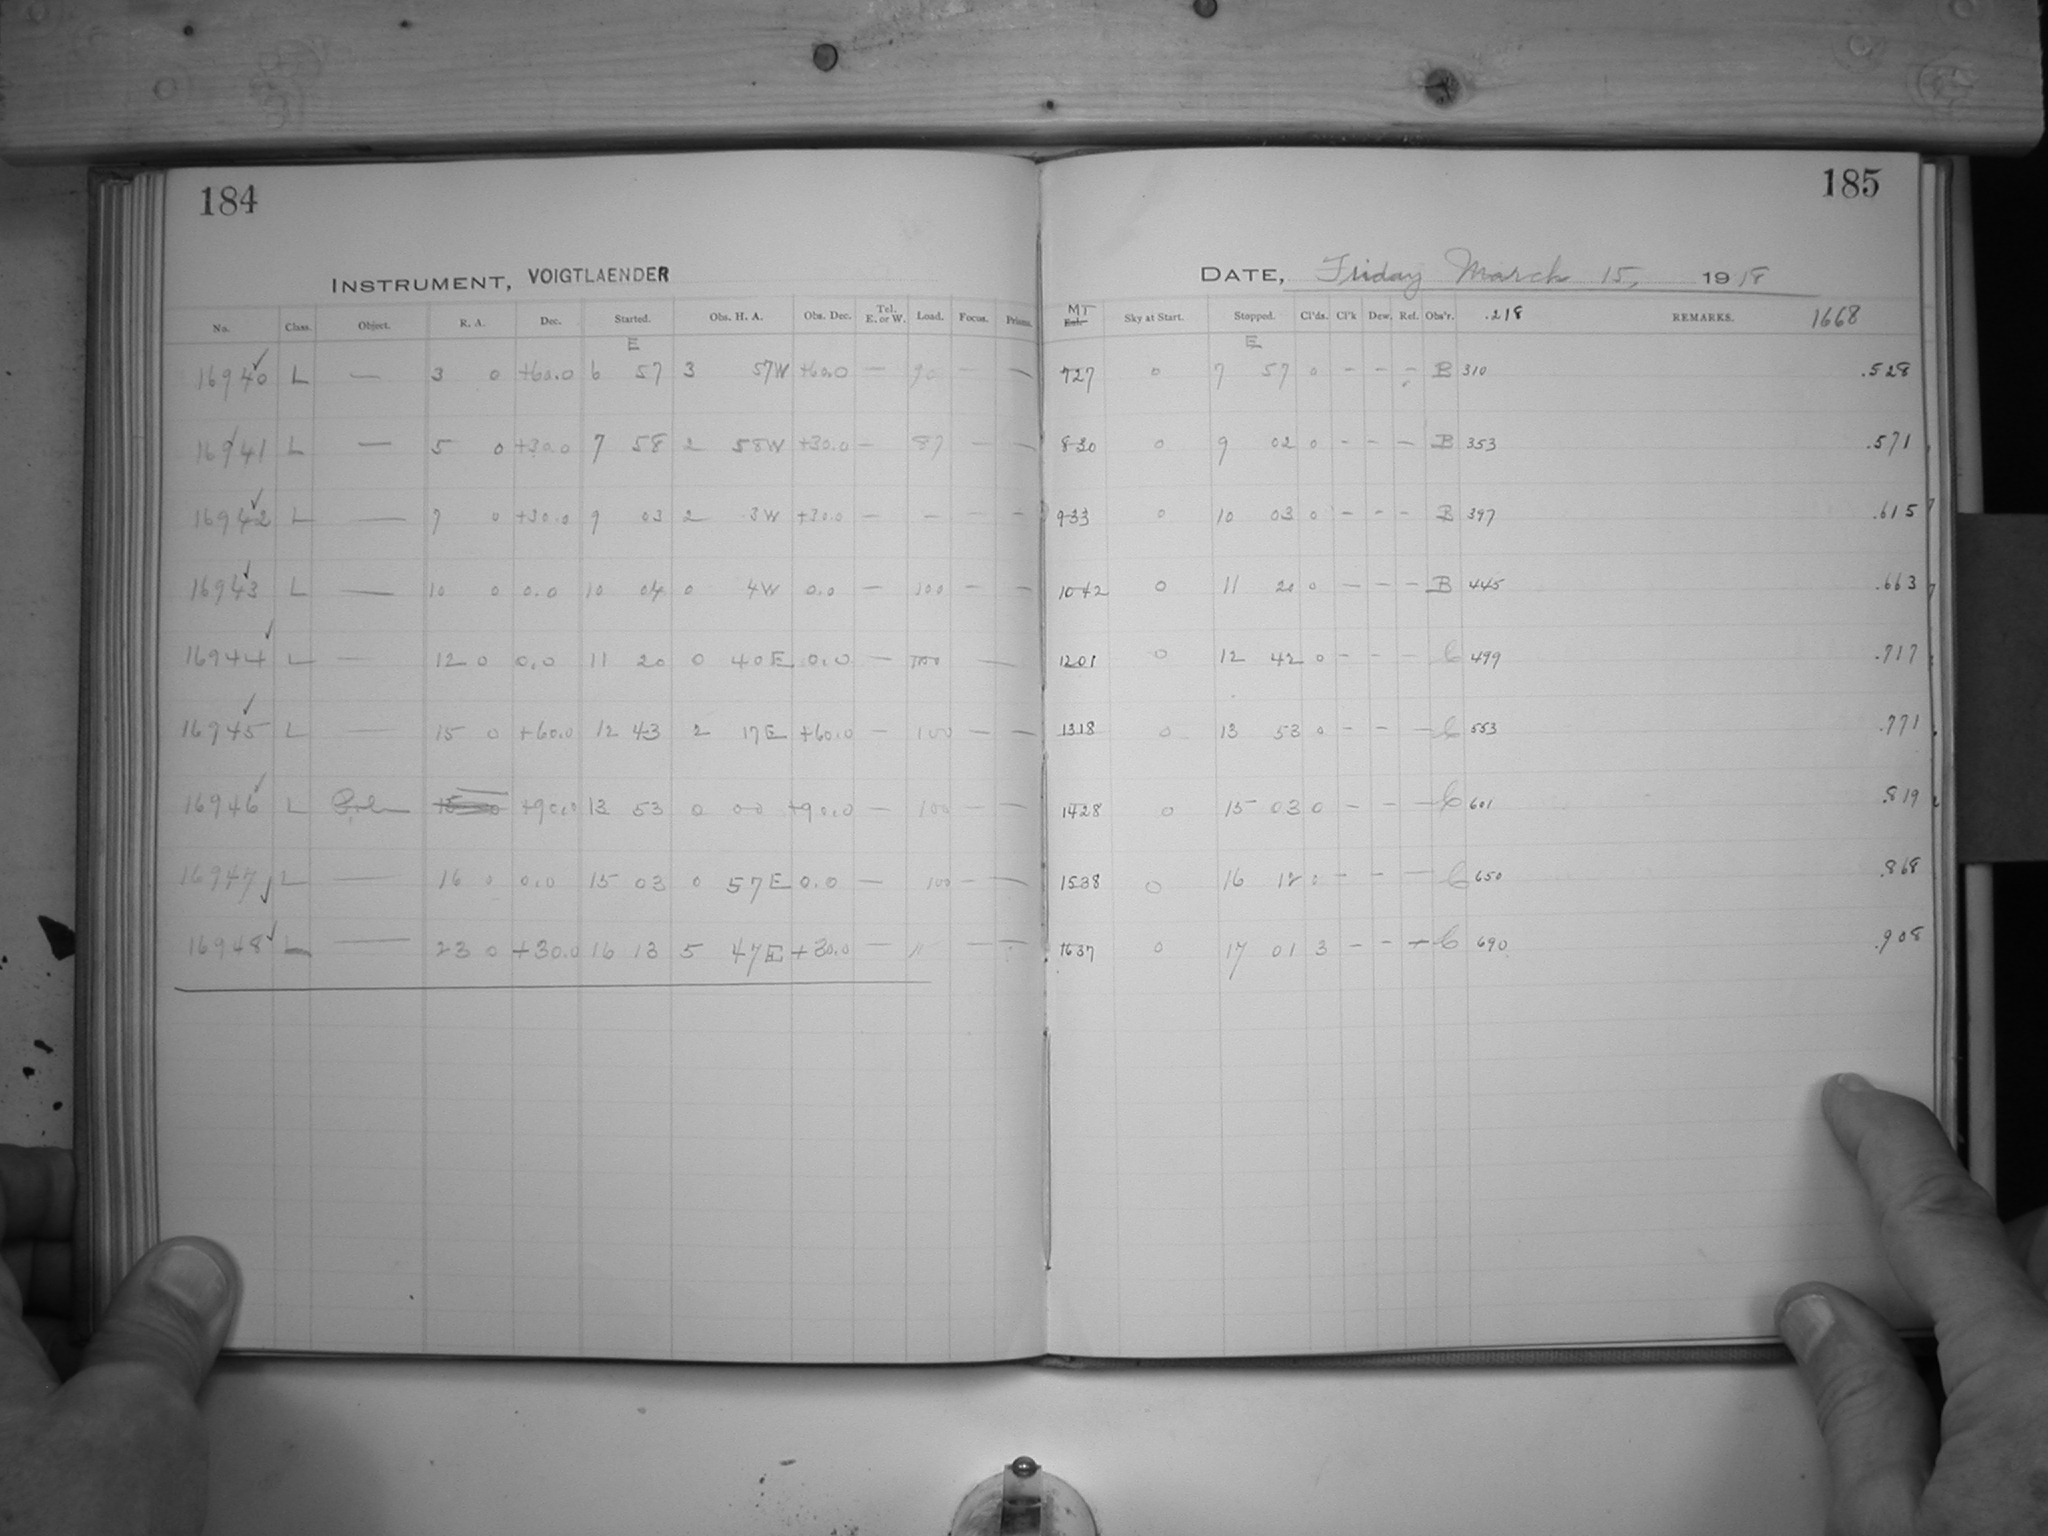 184
INSTRUMENT, VOIGTLAENDER
No. Class. Object. R. A. Dec. Started. Obs. H. A. Obs. Dec. Tel. E. or W. Load. Focus. Prisms.
E
16940 ✓ L — 3 0 +60.0 6 57 3 57W +60.0 — 90 — —
16941 ✓ L — 5 0 +30.0 7 58 2 58W +30.0 — 87 — —
16942 ✓ L — 7 0 +30.0 9 03 2 3W +30.0 — — — —
16943 ✓ L — 10 0 0.0 10 04 0 4W 0.0 — 100 — —
16944 ✓ L — 12 0 0.0 11 20 0 40E 0.0 — 100 —
16945 ✓ L — 15 0 +60.0 12 43 2 17E +60.0 — 100 — —
16946 ✓ L Pole +90.0 13 53 0 00 +90.0 — 100 — —
16947 ✓ L — 16 0 0.0 15 03 0 57E 0.0 — 100 — —
16948 ✓ L — 23 0 +30.0 16 13 5 47E +30.0 — " — —
185
DATE, Friday March 15, 1918
MT Exp. Sky at Start. Stopped. Cl'ds. Cl'k Dew. Ref. Obs'r. .218 REMARKS. 1668
E
727 0 7 57 0 - - - B 310 .528
830 0 9 02 0 - - - B 353 .571
933 0 10 03 0 - - - B 397 .615
1042 0 11 20 0 - - - B 445 .663
1201 0 12 42 0 - - - C 499 .717
1318 0 13 53 0 - - - C 553 .771
1428 0 15 03 0 - - - C 601 .819
1538 0 16 12 0 - - - C 650 .868
1637 0 17 01 3 - - - C 690 .908